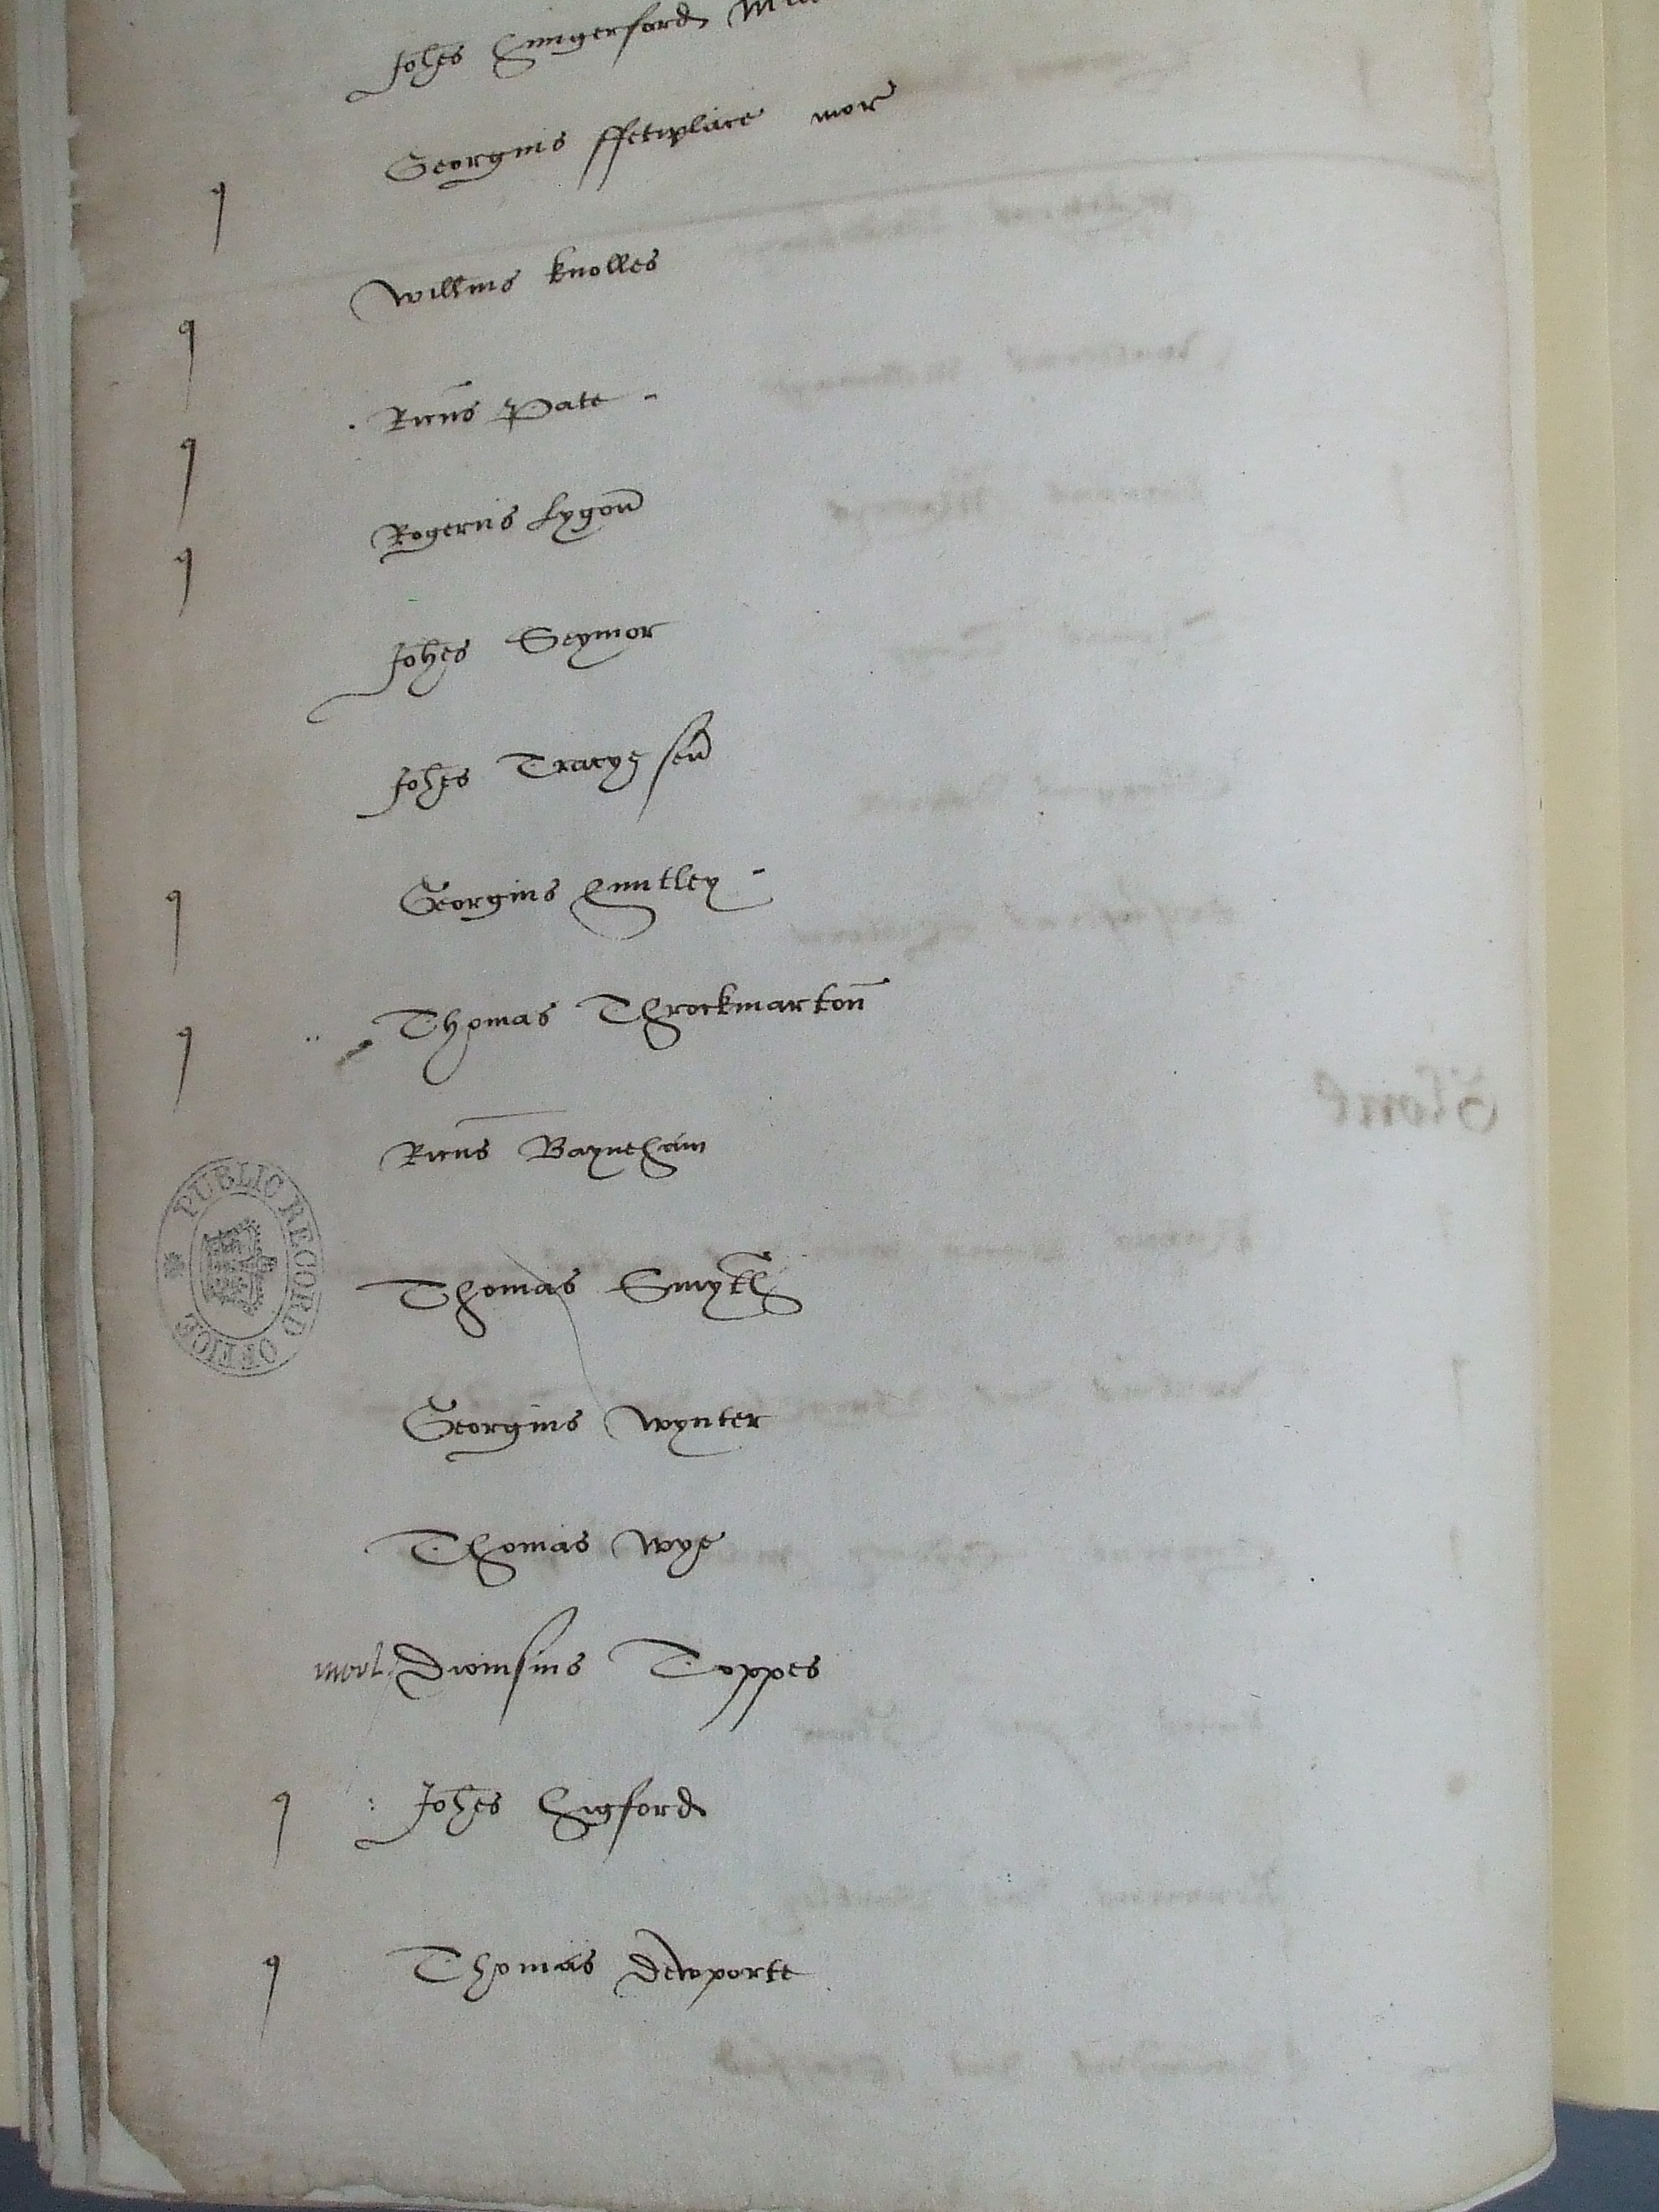 Johes Hungerford
Georgius ffetiplace mor
q Willms Knolles
q Ricus Pate -
q Rogerus Lygon
q Johes Seymor
Johes Tracye sen
Georgius Huntley -
q Thomas Throckmarton
q Ricus Bayneham
Thomas Smyth
Georgius Wynter
Thomas Wye
mort Dionisius Toppes
q : Johes Higford
q Thomas Dewporte
PUBLIC RECORD OFFICE